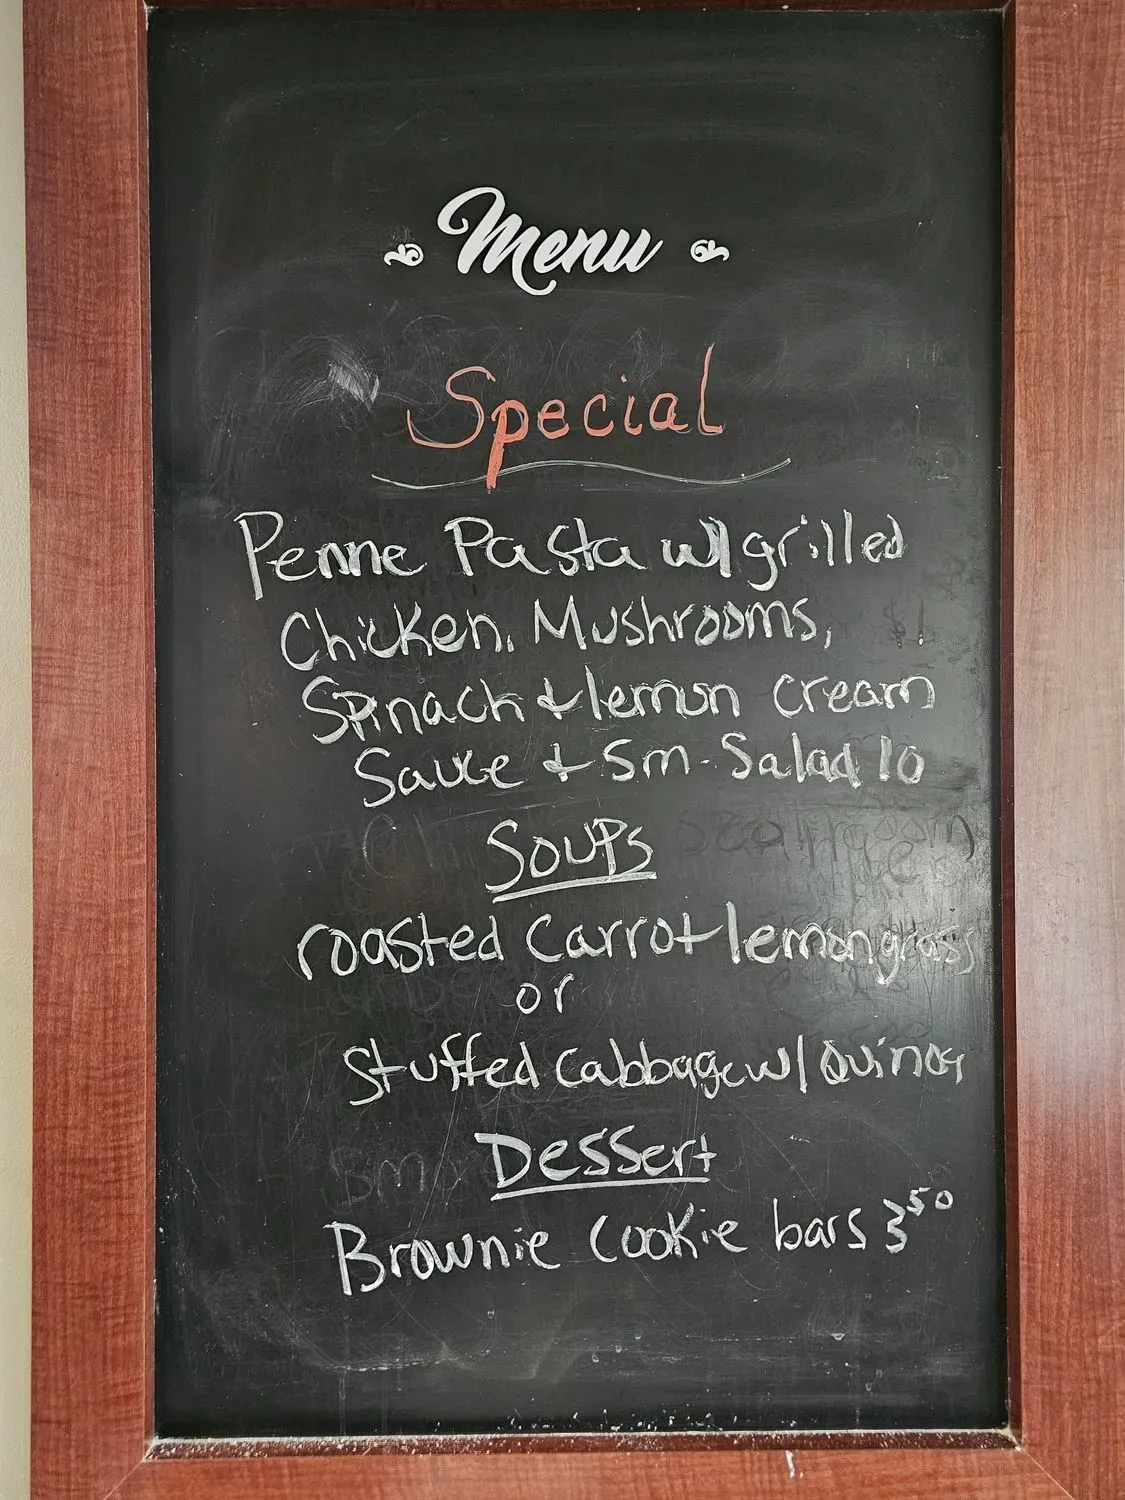 Menu
Special
Penne Pasta w/ grilled
Chicken, Mushrooms,
Spinach & lemon cream
Sauce & Sm. Salad 10
Soups
roasted Carrot lemongrass
or
Stuffed Cabbage w/ Quinoa
Dessert
Brownie Cookie bars 3⁵⁰